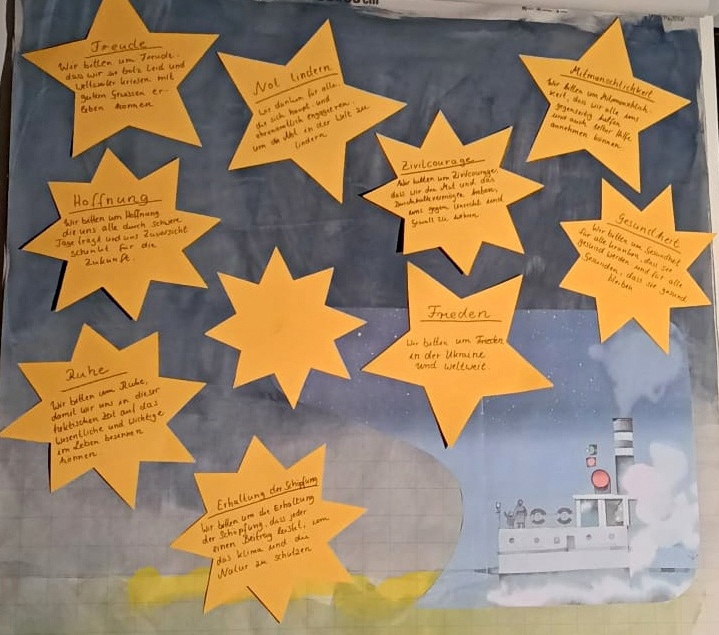 Freude
Wir bitten um Freude,
dass wir so trotz Leid und
weltweiter Krisen mit
gutem Gewissen er-
leben können.
Not lindern
Wir danken für alle,
die sich haupt- und
ehrenamtlich engagieren,
um die Not in der Welt zu
lindern
Mitmenschlichkeit
Wir bitten um Mitmenschlich-
keit, dass wir alle uns
gegenseitig helfen
und auch selber Hilfe
annehmen können.
Zivilcourage
Wir bitten um Zivilcourage,
dass wir den Mut und das
Durchhaltevermögen haben,
uns gegen Unrecht und
Gewalt zu wehren
Hoffnung
Wir bitten um Hoffnung
die uns alle durch schwere
Tage trägt und uns Zuversicht
schenkt für die
Zukunft.
Gesundheit
Wir bitten um Gesundheit
für alle Kranken, dass sie
gesund werden und für alle
Gesunden, dass sie gesund
bleiben
Frieden
Wir bitten um Frieden
in der Ukraine
und weltweit.
Ruhe
Wir bitten um Ruhe,
damit wir uns in dieser
hektischen Zeit auf das
Wesentliche und Wichtige
im Leben besinnen
können.
Erhaltung der Schöpfung
Wir bitten um die Erhaltung
der Schöpfung, dass jeder
einen Beitrag leistet, um
das Klima und die
Natur zu schützen